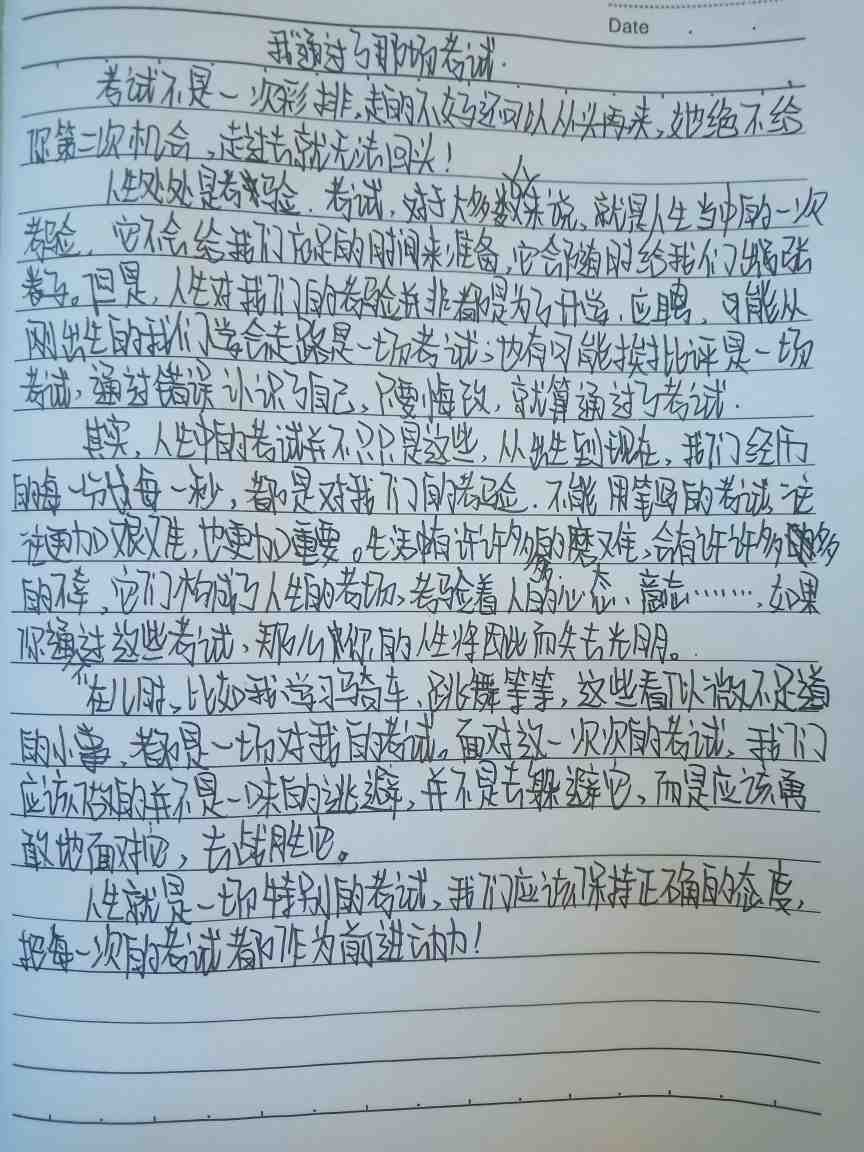 Date
我通过了那场考试.
考试不是一次彩排,走的不好还可以从头再来,她绝不给
你第二次机会,走过去就无法回头!
人生处处是考验.考试,对于大多数人来说,就是人生当中的一次
考验,它不会给我们充足的时间来准备,它会随时给我们出张
卷子。但是,人生对我们的考验并非都是为了升学,应聘,可能从
刚出生的我们学会走路是一场考试;也有可能挨批评是一场
考试,通过错误认识了自己,只要悔改,就算通过了考试.
其实,人生中的考试并不只只是这些,从出生到现在,我们经历
的每一分钟每一秒,都是对我们的考验.不能用笔写的考试往
往更加艰难,也更加重要。生活中有许许多多的磨难,会有许许多多
的不幸,它们构成了人生的考场,考验着人的心态、意志……,如果
你不通过这些考试,那么你的人生将因此而失去光明。
在儿时,比如我学习骑车、跳舞等等,这些看似微不足道
的小事,都是一场对我的考试。面对这一次次的考试,我们
应该做的并不是一味的逃避,并不是去躲避它,而是应该勇
敢地面对它,去战胜它。
人生就是一场特别的考试,我们应该保持正确的态度,
把每一次的考试都作为前进动力!